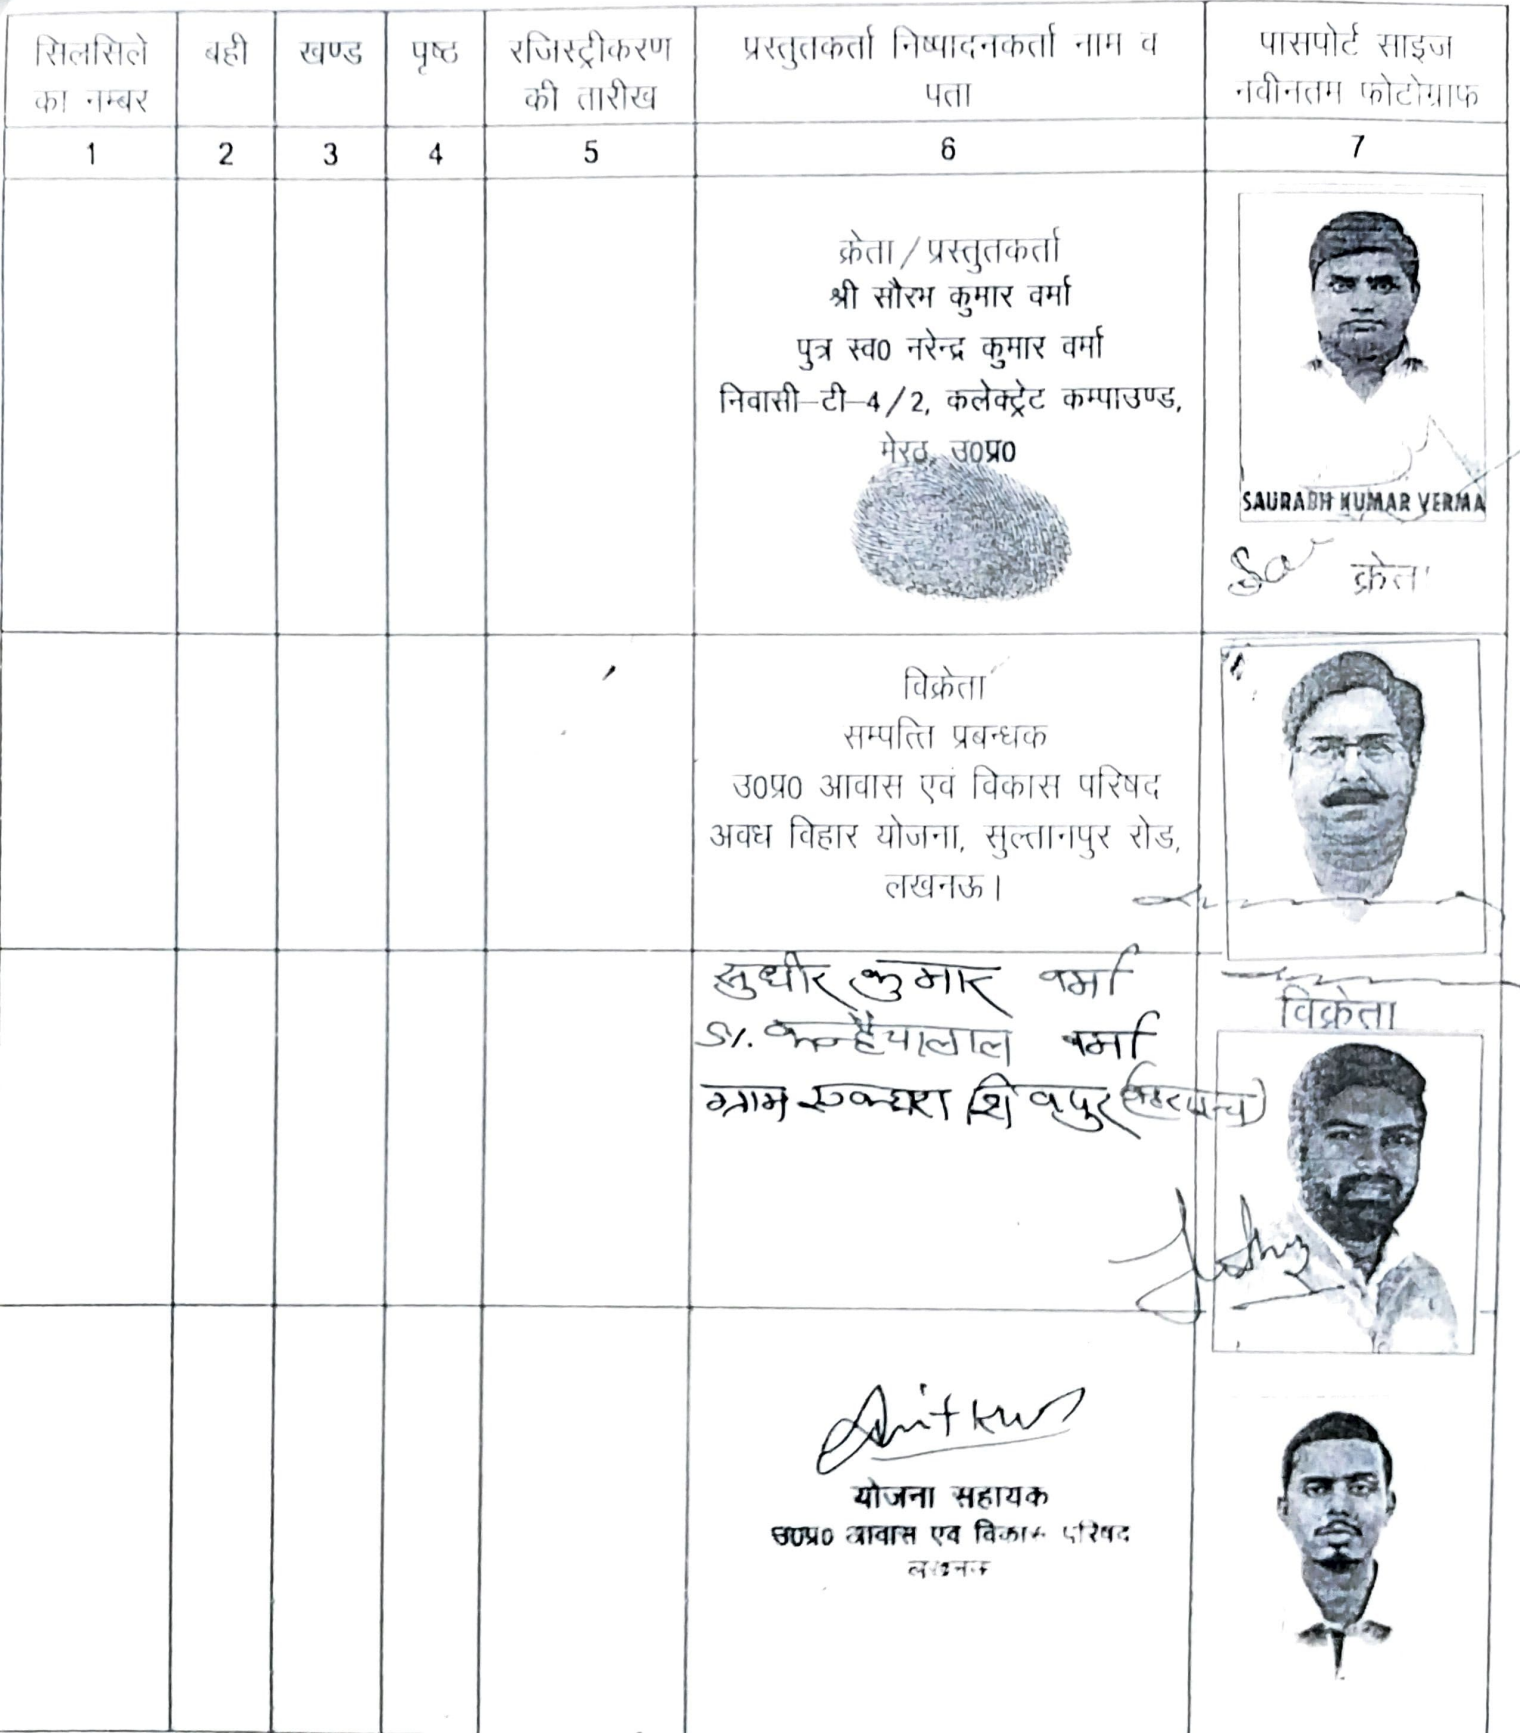 सिलसिले का नम्बर
बही
खण्ड
पृष्ठ
रजिस्ट्रीकरण की तारीख
प्रस्तुतकर्ता निष्पादनकर्ता नाम व पता
पासपोर्ट साइज नवीनतम फोटोग्राफ
1 2 3 4 5 6 7
क्रेता/प्रस्तुतकर्ता
श्री सौरभ कुमार वर्मा
पुत्र स्व0 नरेन्द्र कुमार वर्मा
निवासी-टी-4/2, कलेक्ट्रेट कम्पाउण्ड,
मेरठ, उ0प्र0
SAURABH KUMAR VERMA
क्रेता
विक्रेता
सम्पत्ति प्रबन्धक
उ0प्र0 आवास एवं विकास परिषद
अवध विहार योजना, सुल्तानपुर रोड,
लखनऊ।
विक्रेता
सुधीर कुमार वर्मा
S/. कन्हैयालाल वर्मा
ग्राम शिवपुर
योजना सहायक
उ0प्र0 आवास एवं विकास परिषद
लखनऊ